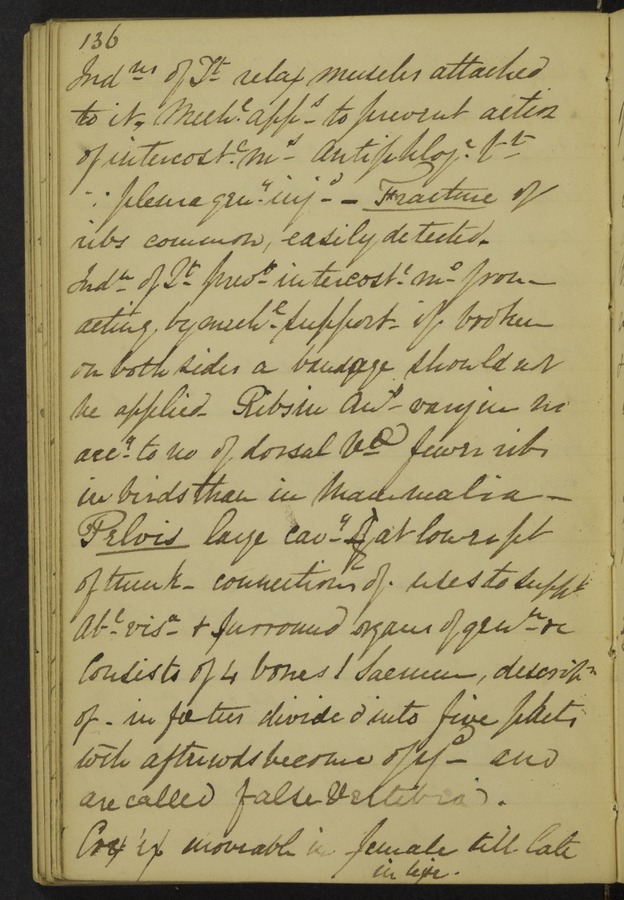 136
Indns of Tt relax muscles attached
to it, Mechc apps to prevent action
of intercostl ms Antiphlogc Tt
∵ pleura geny injd — Fracture of
ribs common, easily detected.
Indn of Tt prevt intercostl ms from
acting, by mechl support if broken
on both sides a bandage should not
be applied. Ribs in Anls vary in no
accg to no of dorsal Vd fewer ribs
in birds than in Mammalia —
Pelvis large cavy at lower pt
of trunk — connections of. uses to suppt
Abl visa & surround organs of genn &c
Consists of 4 bones 1 Sacrum, descripn
of — in foetus divided into five pts
wch afterwds become ossd — and
are called false Vertebra.
Coxyx moveable in female till late
in life.